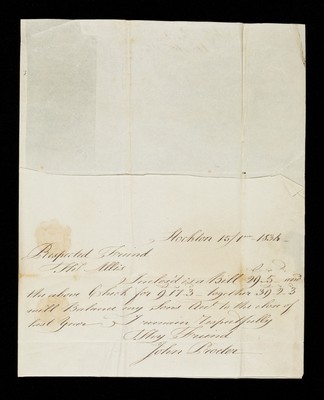 Stockton 15/1mo 1834
Respected Friend
Thos Allis
Inclos'd is a Bill 29.5 and
the above Check for 9.17.3 together 39.2.3
will Balance my Sons Acct to the close of
last Year I remain respectfully
Thy Friend
John Procter